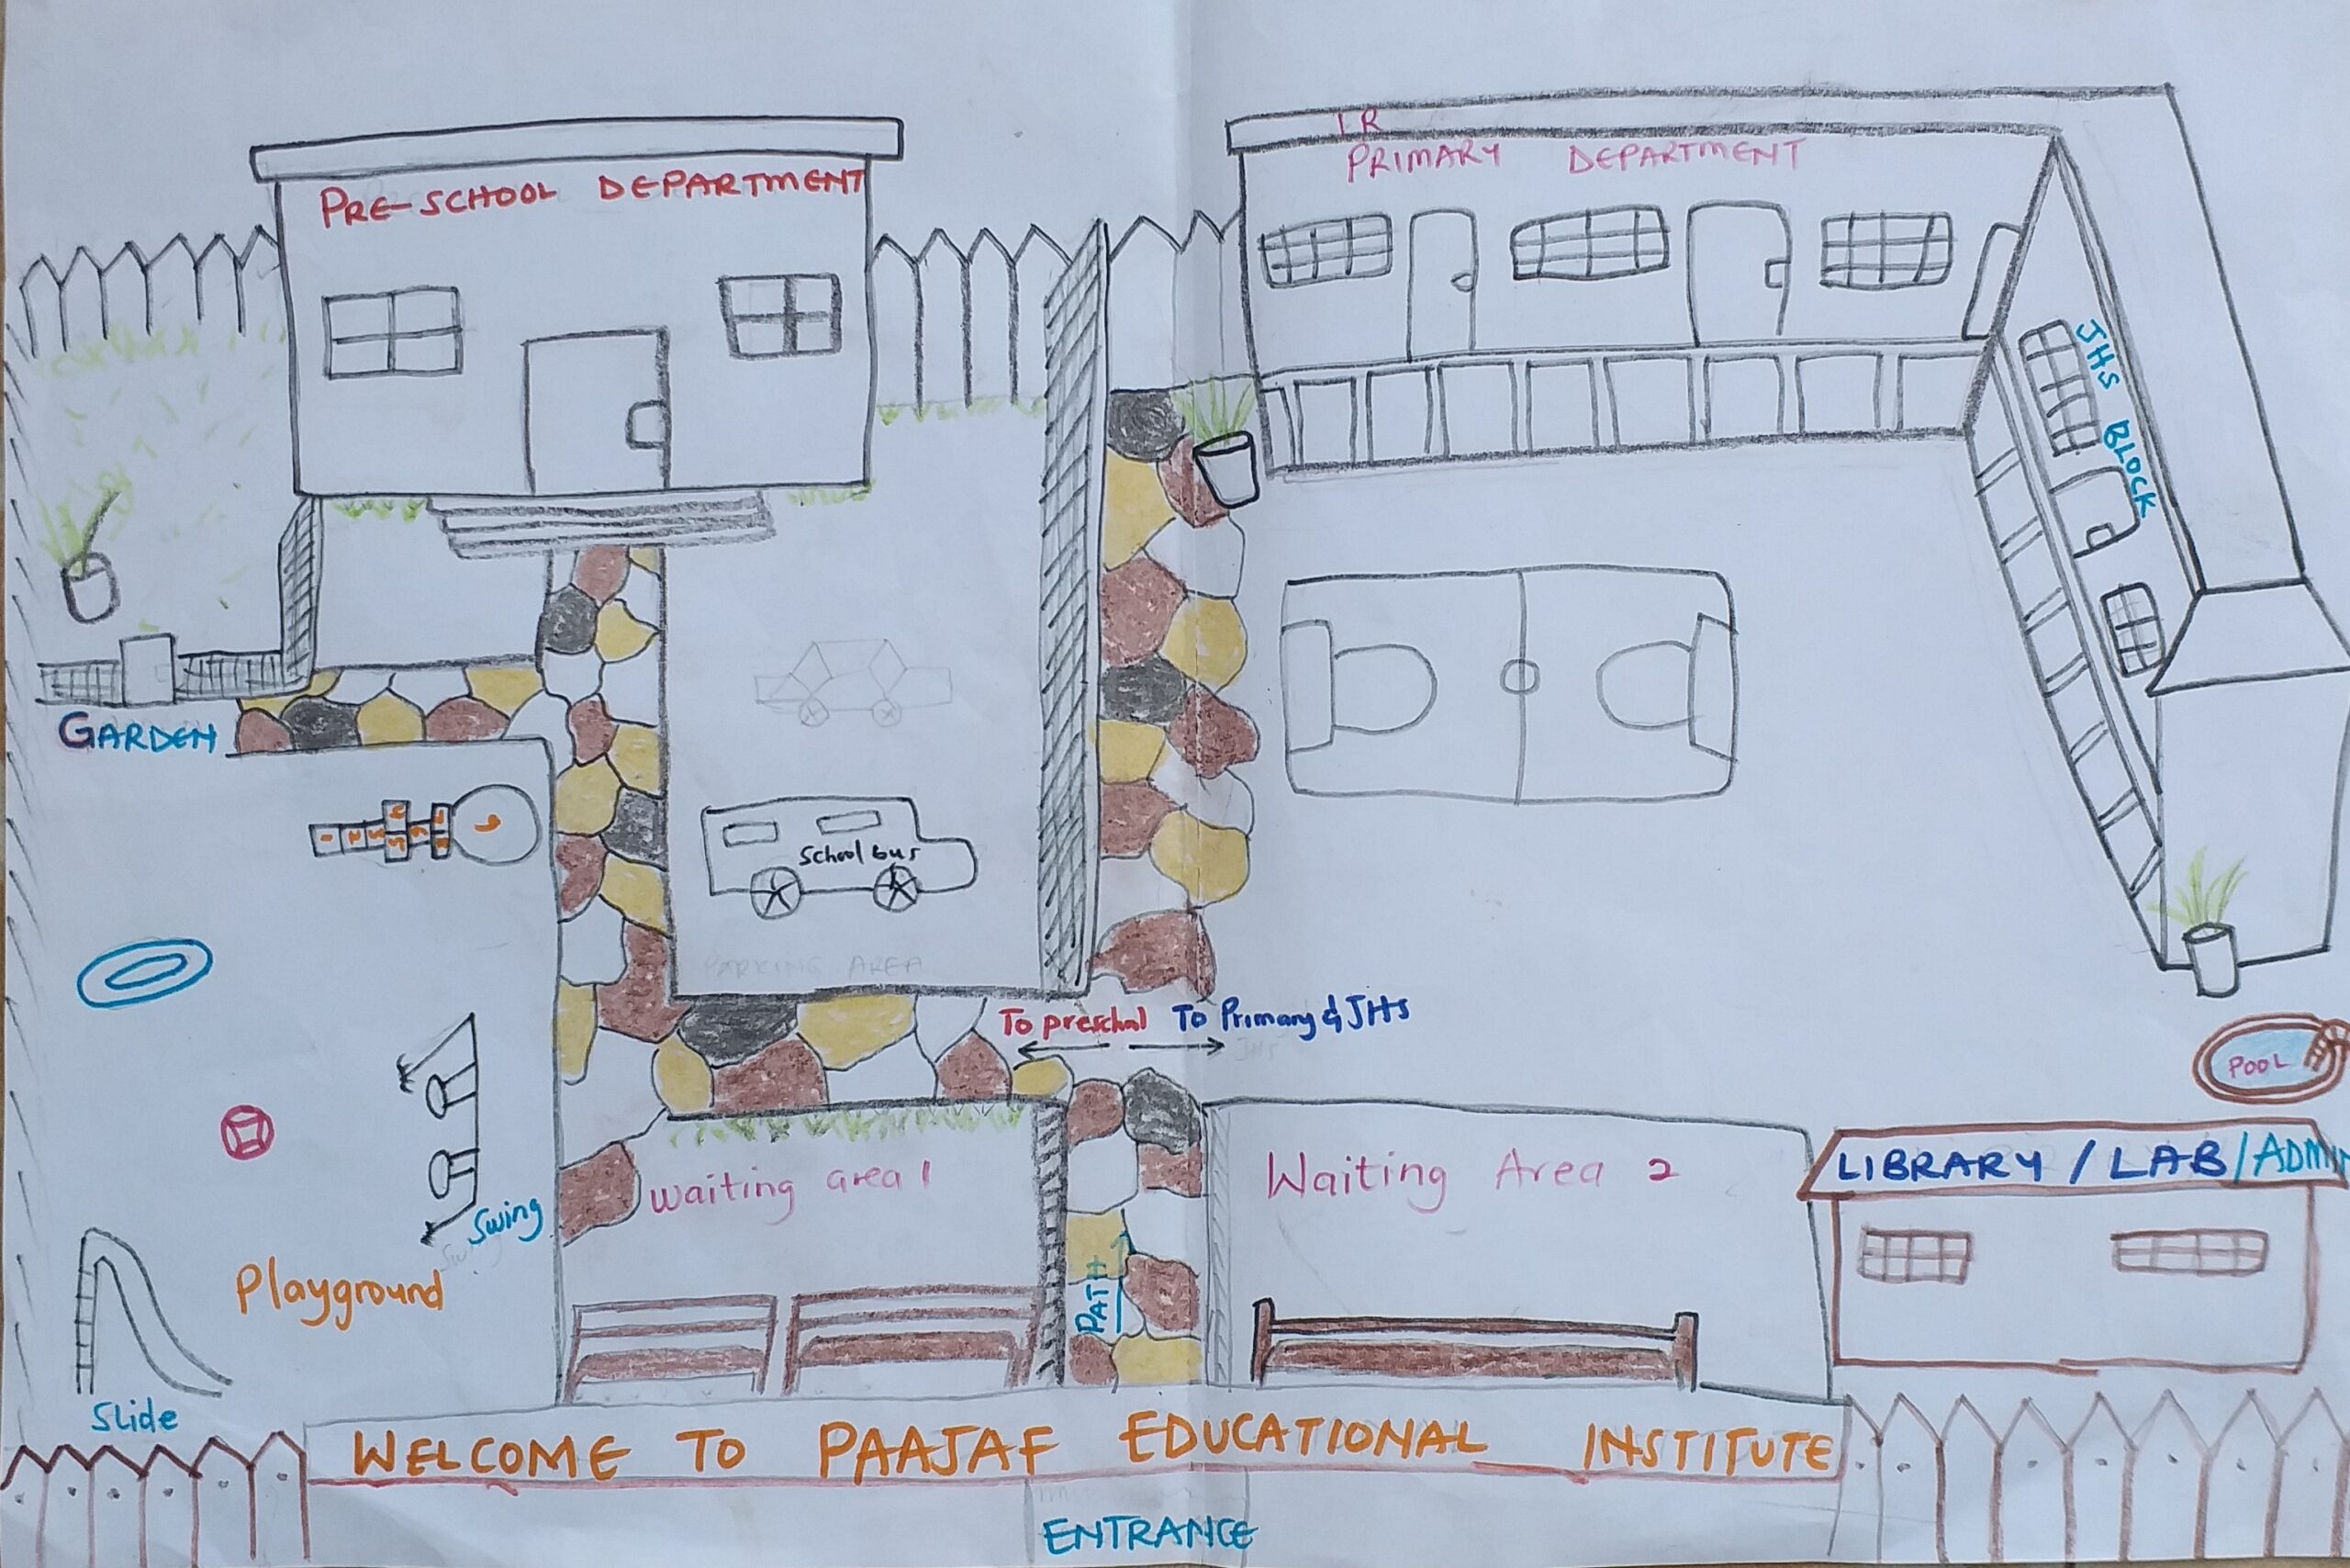 PRE-SCHOOL DEPARTMENT
PRIMARY DEPARTMENT
JHS BLOCK
GARDEN
School bus
PARKING AREA
To preschol
To Primary & JHS
JHS
POOL
Waiting area 1
Waiting Area 2
LIBRARY / LAB / ADMIN
Swing
Swing
Playground
PATH
Slide
WELCOME TO PAAJAF EDUCATIONAL INSTITUTE
ENTRANCE